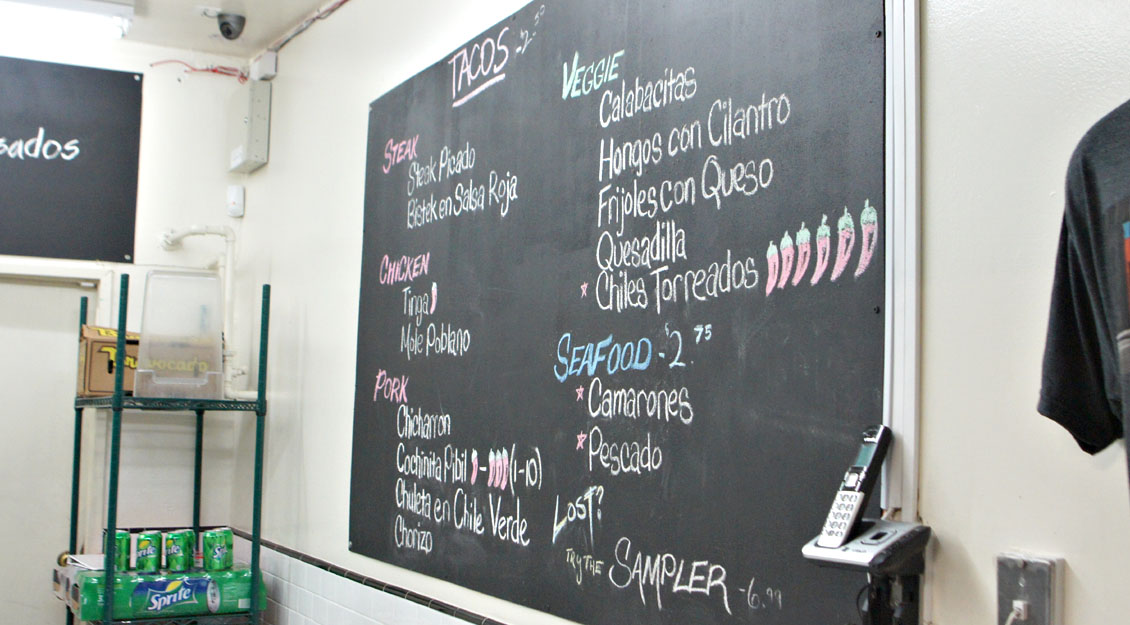 sados
TACOS - 2.50
STEAK
Steak Picado
Bistek en Salsa Roja
CHICKEN
Tinga
Mole Poblano
PORK
Chicharron
Cochinita Pibil - (1-10)
Chuleta en Chile Verde
Chorizo
VEGGIE
Calabacitas
Hongos con Cilantro
Frijoles con Queso
Quesadilla
Chiles Torreados
SEAFOOD - $2.75
Camarones
Pescado
LOST?
TRY THE SAMPLER - 6.99
Sprite